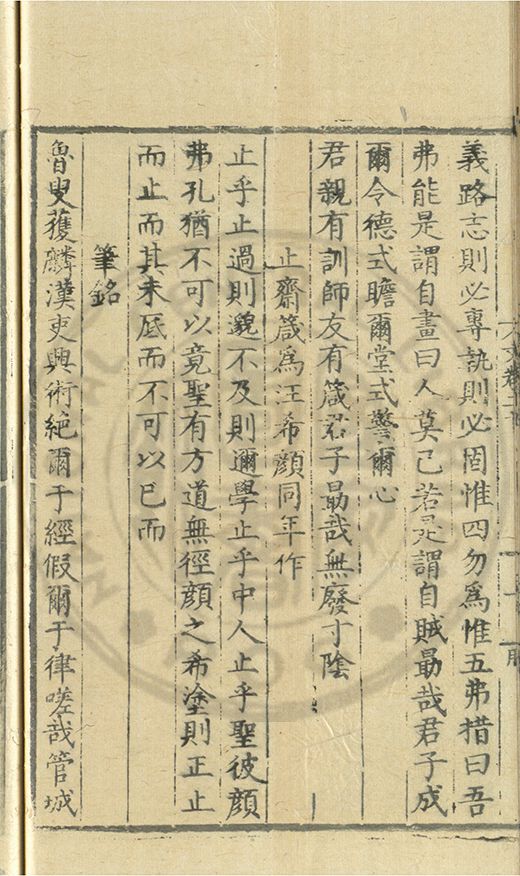 義路志則必專執則必固惟四勿爲惟五弗措曰吾
弗能是謂自畫曰人莫己若是謂自賊勗哉君子成
爾令德式瞻爾堂式警爾心
君親有訓師友有箴君子勗哉無廢寸陰
止齋箴爲汪希顏同年作
止乎止過則邈不及則邇學止乎中人止乎聖彼顏
弗孔猶不可以竟聖有方道無徑顏之希塗則正止
而止而其未厎而不可以已而
筆銘
魯叟獲麟漢吏興術絕爾于經假爾于律嗟哉管城